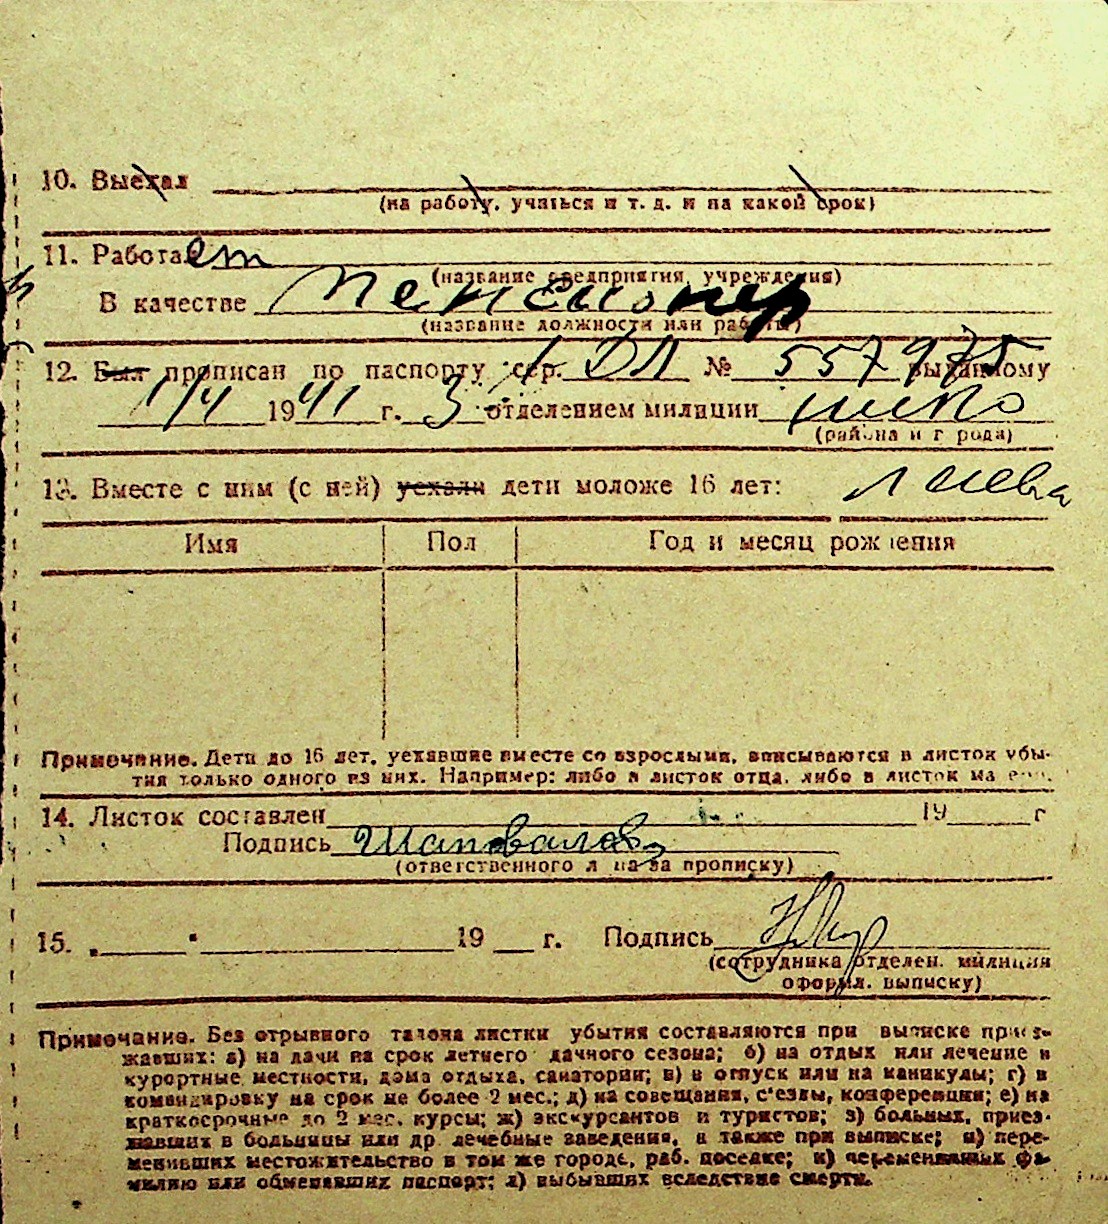 10. Выехал
(на работу, учиться и т. д. и на какой срок)
11. Работает
(название предприятия, учреждения)
В качестве пенсионер
(название должности или работы)
12. Был прописан по паспорту сер. ДЛ № 557975 выданному
1/4 1941 г. 3 отделением милиции
(района и города)
13. Вместе с ним (с ней) уехали дети моложе 16 лет:
Имя Пол Год и месяц рождения
Примечание. Дети до 16 лет, уехавшие вместе со взрослыми, вписываются в листок убы-
тия только одного из них. Например: либо в листок отца, либо в листок матери.
14. Листок составлен 19 г
Подпись Шаповалов
(ответственного лица за прописку)
15. „ " 19 г. Подпись
(сотрудника отделен. милиции
оформ. выписку)
Примечание. Без отрывного талона листки убытия составляются при выписке приез-
жавших: а) на дачи на срок летнего дачного сезона; б) на отдых или лечение в
курортные местности, дома отдыха, санатории; в) в отпуск или на каникулы; г) в
командировку на срок не более 2 мес.; д) на совещания, с'езды, конференции; е) на
краткосрочные до 2 мес. курсы; ж) экскурсантов и туристов; з) больных, приез-
жавших в больницы или др. лечебные заведения, а также при выписке; и) пере-
менивших местожительство в том же городе, раб. поселке; к) переменивших фа-
милию или обменявших паспорт; л) выбывших вследствие смерти.